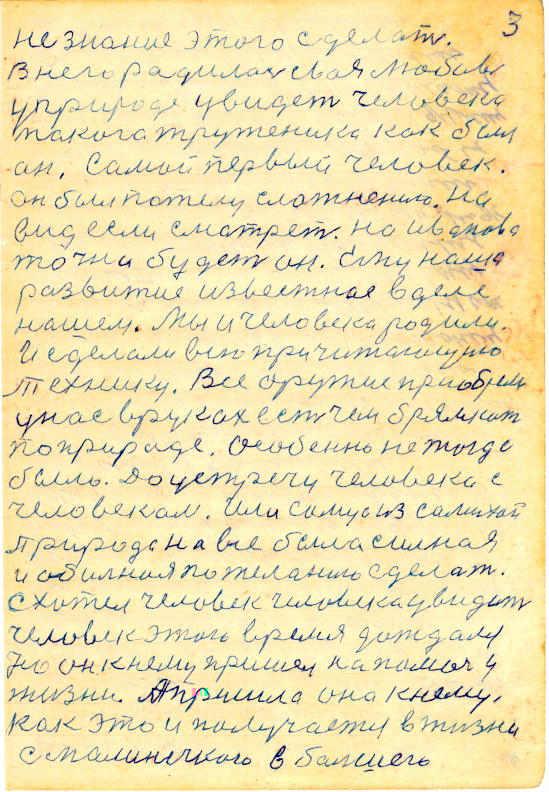 3
не знание этого сделат.
В него радилас своя любов
у природе увидет человека
такога труженика как был
он. Самой первый человек.
он был потелу сложнению. На
вид если сматрет. на Иванова
точна будет он. Ему наша
развитие известнае в деле
нашем. Мы и человека родили.
И сделали всю причитающую
технику. Все оружие приобрели
унас в руках ест чем брямкат
поприроде. Особенно не тогда
было. До устречи человека с
человекам. Или самую из самихой
природа на все была силная
и обилная пожеланию сделат.
схотел человек человека увидит
человек этого время дождалу
но он кнему пришел на помоч у
жизни. Апришла она кнему,
как это и получается в жизни
с малинечкого в балшего